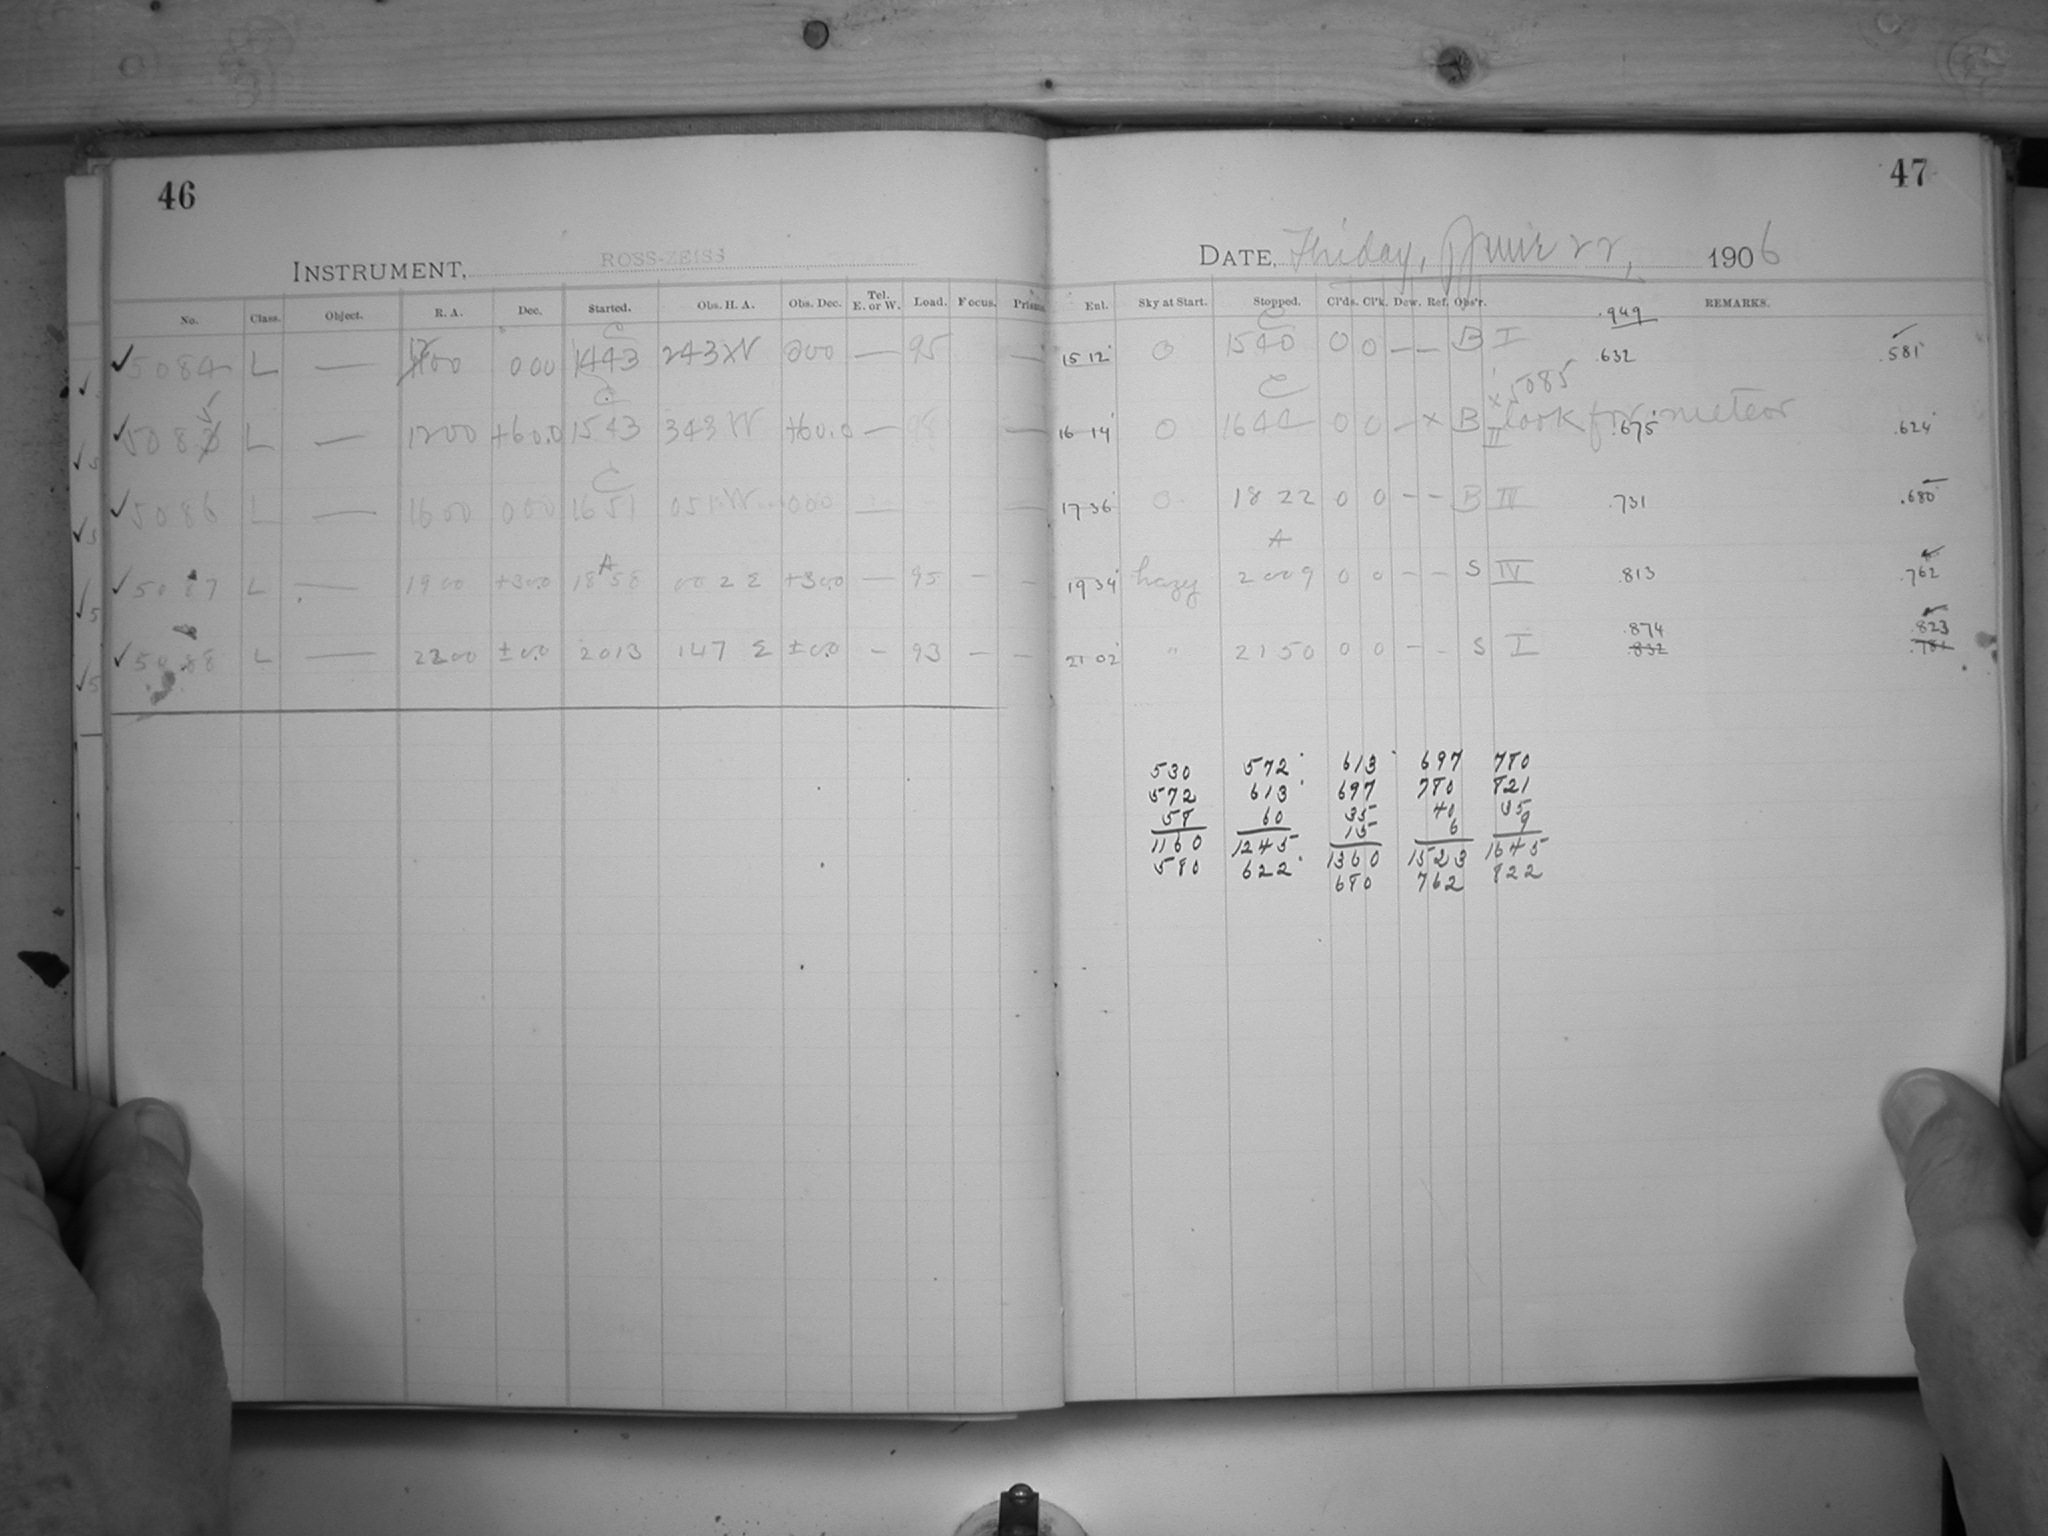 46
INSTRUMENT, ROSS-ZEISS
No. Class. Object. R. A. Dec. Started. Obs. H. A. Obs. Dec. Tel. E. or W. Load. Focus. Prism.
C
✓5084 L — 1200 000 1443 243 W 000 — 95 —
C
✓5085 L — 1200 +60.0 1543 343 W +60.0 — 98 —
C
✓5086 L — 1600 000 1651 051 W 000 — —
A
✓5087 L — 1900 +30.0 1858 00 2 E +30.0 — 95 – –
✓5088 L — 2200 ±0.0 2013 147 E ±0.0 – 93 – –
47
DATE, Friday, June 22, 1906
Enl. Sky at Start. Stopped. Cl'ds. Cl'k. Dew. Ref. Obs'r. REMARKS.
.949
C
15 12 0 1540 0 0 – – B I .632 .581
C
x 5085
16 14 0 1644 0 0 – x B II look for meteor .675 .624
17 36 0 18 22 0 0 – – B IV .731 .680
A
19 34 hazy 2009 0 0 – – S IV .813 .762
.874 .823
21 02 " 2150 0 0 – – S I .832 .781
530 572 613 697 780
572 613 697 780 821
58 60 35 40 35
15 6 9
1160 1245 1360 1523 1645
580 622 680 762 822